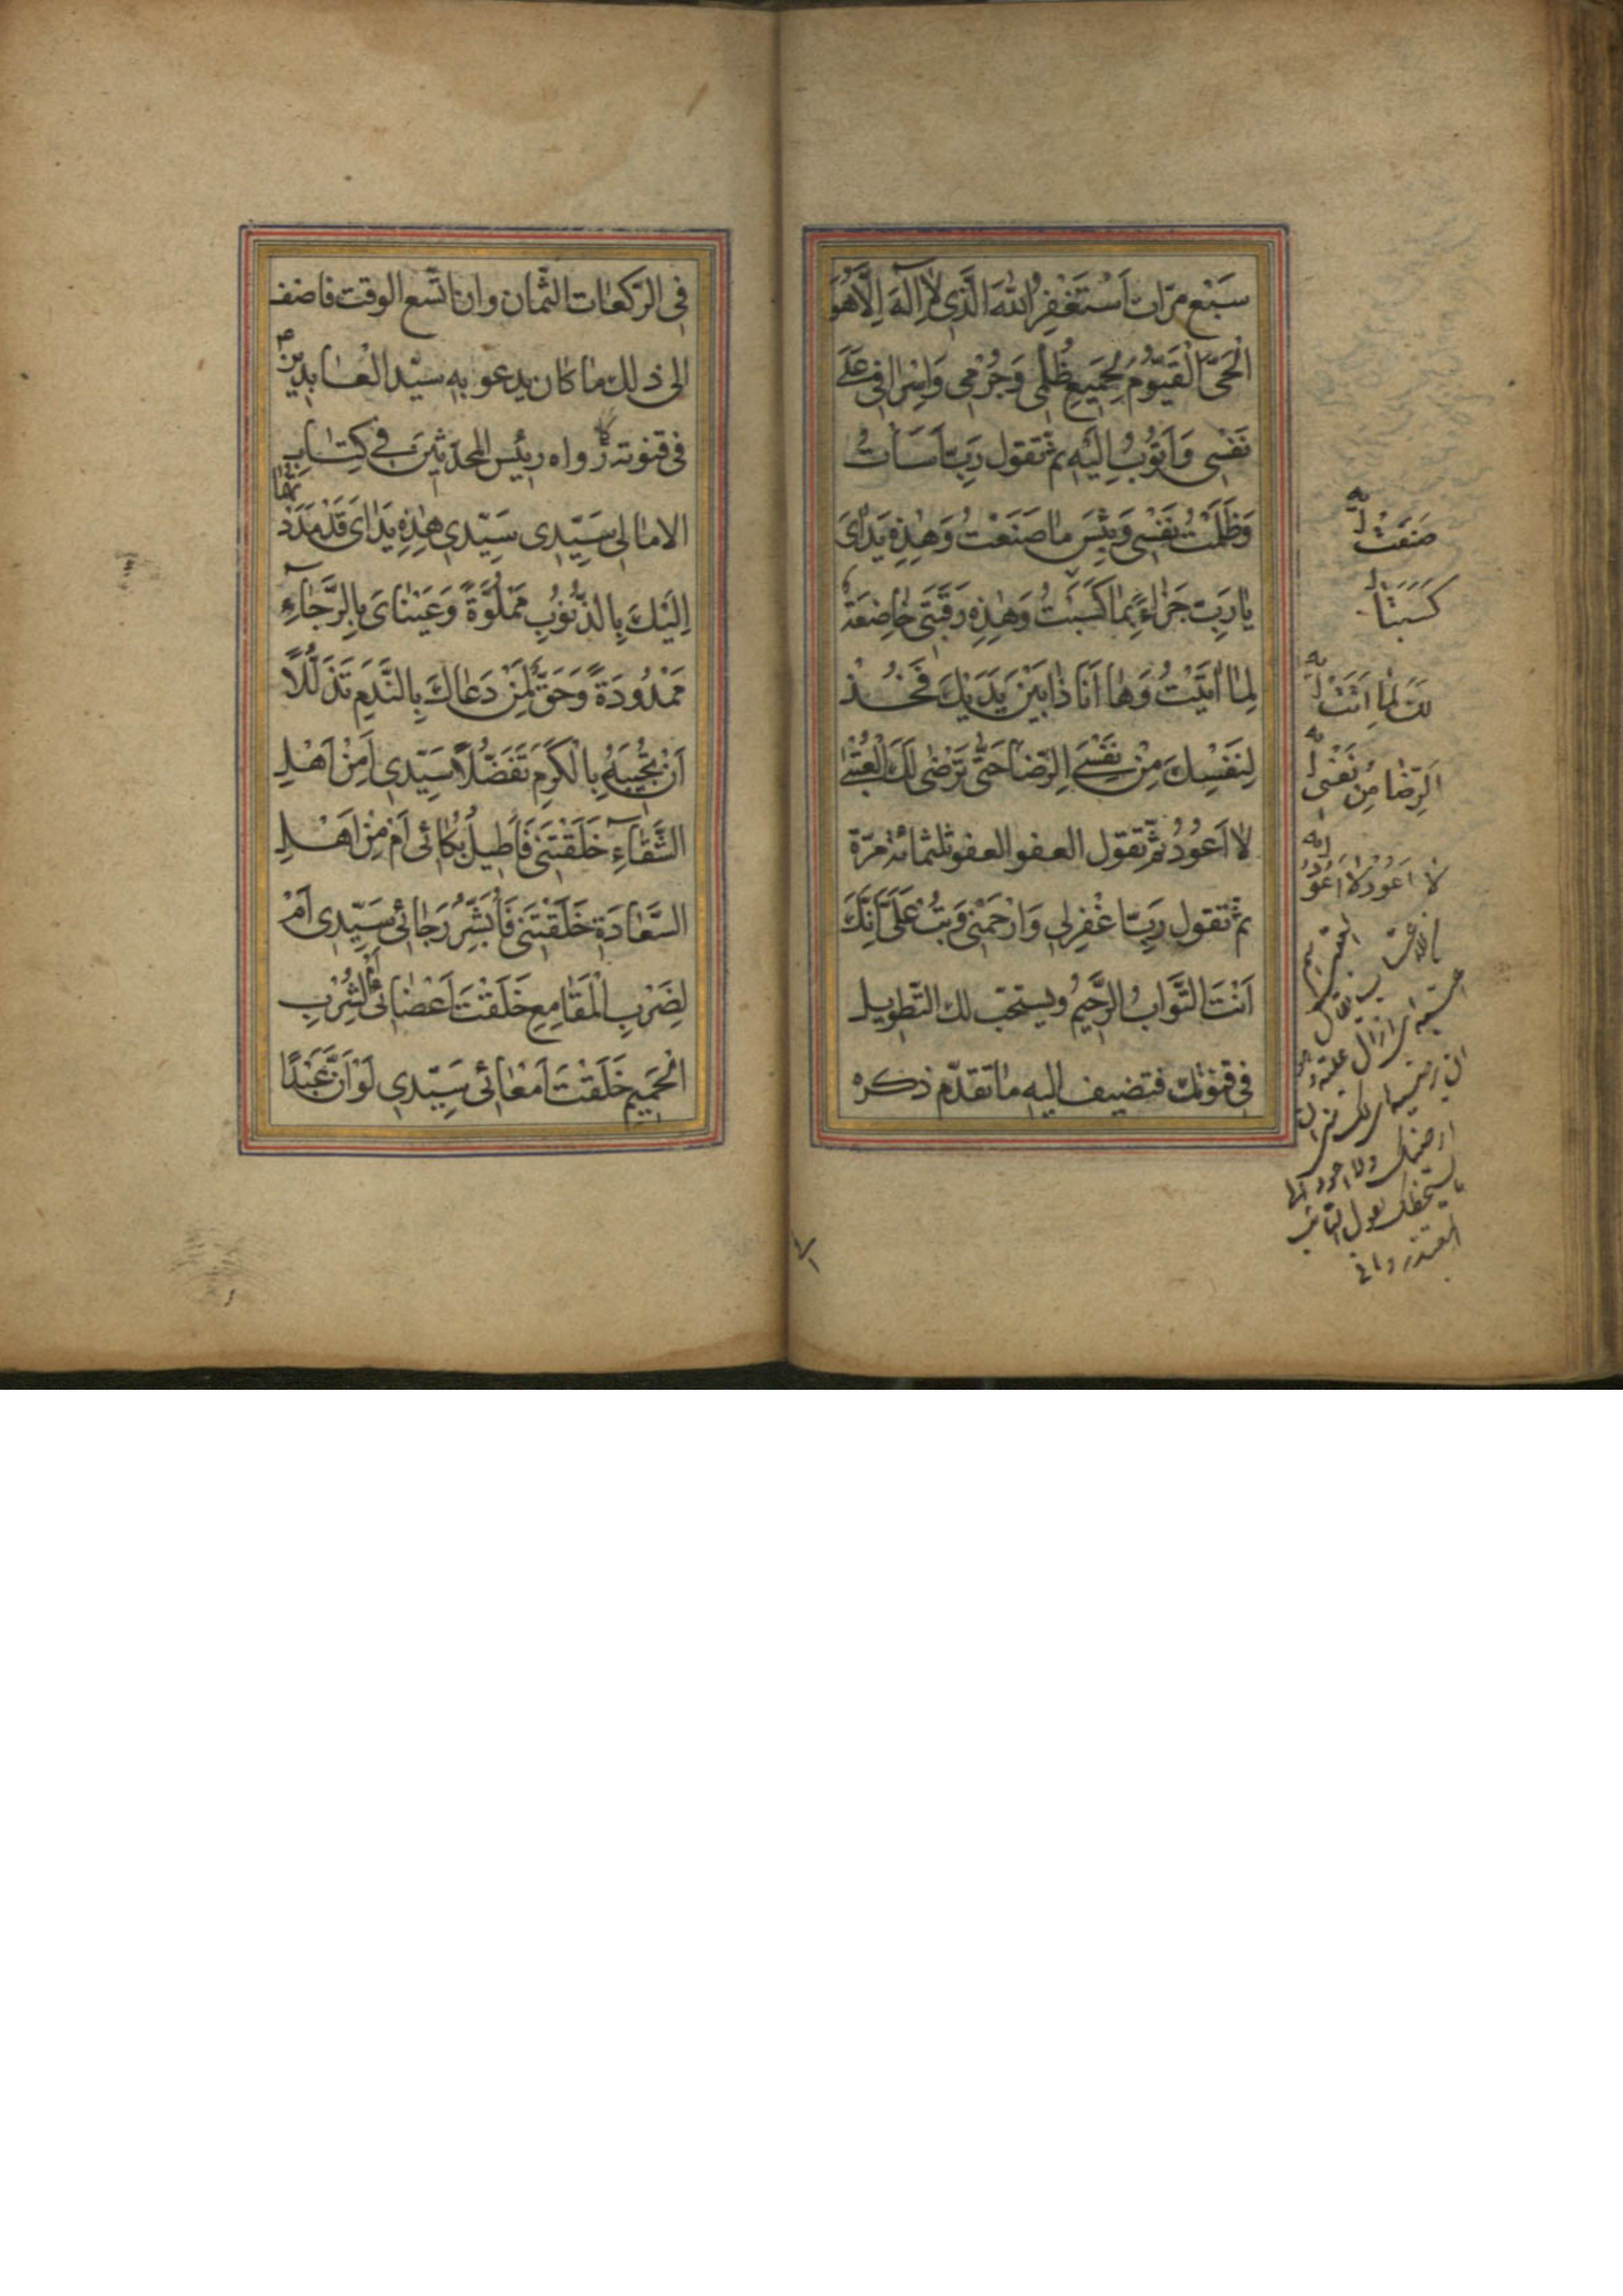 سَبْعَ مرّات اَسْتَغْفِرُ اللهَ الَّذى لاٰ اِلٰهَ اِلَّا هُوَ
الْحَىُّ الْقَيُّومُ لِجَميعِ ظُلْمى وَجُرْمى وَاِسْرافى عَلىٰ
نَفْسى وَاَتُوبُ اِلَيْهِ ثم تقول رَبِّ اَسَاْتُ
وَظَلَمْتُ نَفْسى وَبِئْسَ ماٰ صَنَعْتُ وَهٰذِهِ يَداٰىَ
ياٰ رَبِّ جَزاٰءً بِماٰ كَسَبَتْ وَهٰذِهِ رَقَبَتى خاٰضِعَةٌ
لِماٰ اَتَيْتُ وَهاٰ اَنَا ذاٰ بَيْنَ يَدَيْكَ فَخُذْ
لِنَفْسِكَ مِنْ نَفْسِىَ الرِّضاٰ حَتّىٰ تَرْضىٰ لَكَ الْعُتْبىٰ
لاٰ اَعُودُ ثمّ تقول العفو العفو ثلثمائة مرّة
ثم تقول رَبِّ اغْفِرْلى وَارْحَمْنى وَتُبْ عَلَىَّ اِنَّكَ
اَنْتَ التَّوّابُ الرَّحيمُ ويستحب لك التّطويل
فى قنوتك فتضيف اليه ماٰ تقدّم ذكره
صَنَعْتُ
كَسَبَتاٰ
لَكَ لِماٰ اَتَيْتُ
الرِّضاٰ مِنْ نَفْسى
لاٰ اَعُودُ لاٰ اَعُودُ
فى الرّكعاٰت الثّمان وان اتّسع الوقت فاضف
الى ذلك ماٰ كان يدعو به سيّد العاٰبدين
فى قنوته رواه رئيس المحدّثين فى كتاب
الامالى سَيِّدى سَيِّدى هٰذِهِ يَداٰىَ قَدْ مَدَدْتُهُماٰ
اِلَيْكَ بِالذُّنُوبِ مَمْلُوَّةً وَعَيْناٰىَ بِالرَّجاٰءِ
مَمْدُودَةً وَحَقٌّ لِمَنْ دَعاٰكَ بِالنَّدَمِ تَذَلُّلاً
اَنْ تُجيبَهُ بِالْكَرَمِ تَفَضُّلاً سَيِّدى اَمِنْ اَهْلِ
الشَّقاٰءِ خَلَقْتَنى فَاُطيلُ بُكاٰئى اَمْ مِنْ اَهْلِ
السَّعاٰدَةِ خَلَقْتَنى فَاُبَشِّرُ رَجاٰئى سَيِّدى اَمْ
لِضَرْبِ الْمَقاٰمِعِ خَلَقْتَ اَعْضاٰئى اَمْ لِشُرْبِ
الْحَميمِ خَلَقْتَ اَمْعاٰئى سَيِّدى لَوْ اَنَّ عَبْدًا